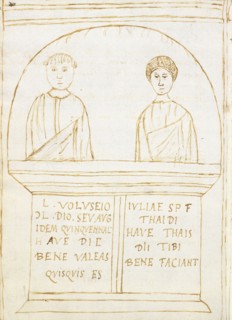 L VOLUSEIO
ƆL DIO. SEV AVG
IDEM QUINQUENNAL
HAVE DIE
BENE VALEAS
QUISQUIS ES
IVLIAE SP F
THAIDI
HAVE THAIS
DII TIBI
BENE FACIANT